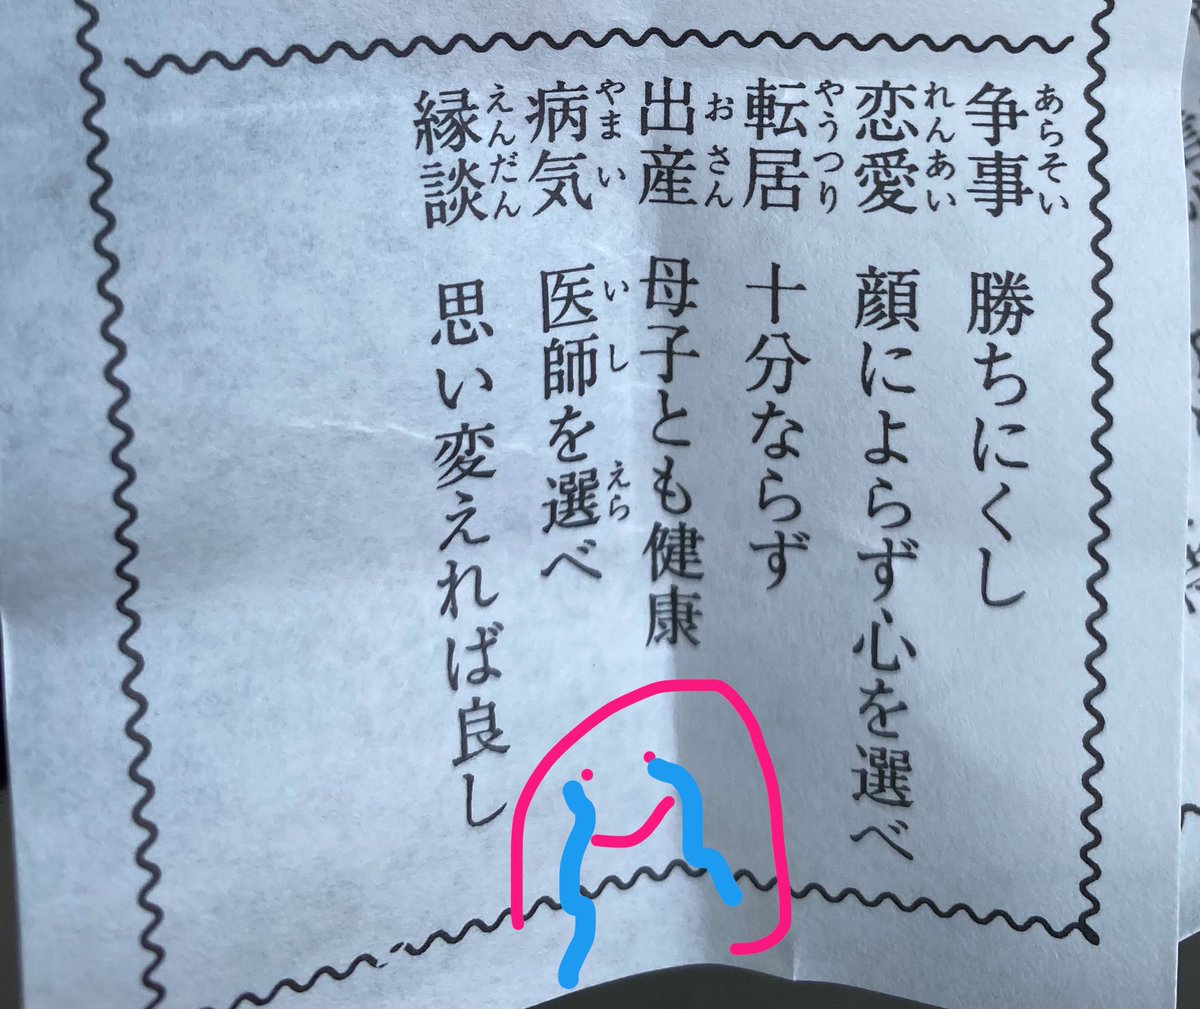 争事 勝ちにくし
あらそい
恋愛 顔によらず心を選べ
れんあい
転居 十分ならず
やうつり
出産 母子とも健康
おさん
病気 医師を選べ
やまい いし えら
縁談 思い変えれば良し
えんだん